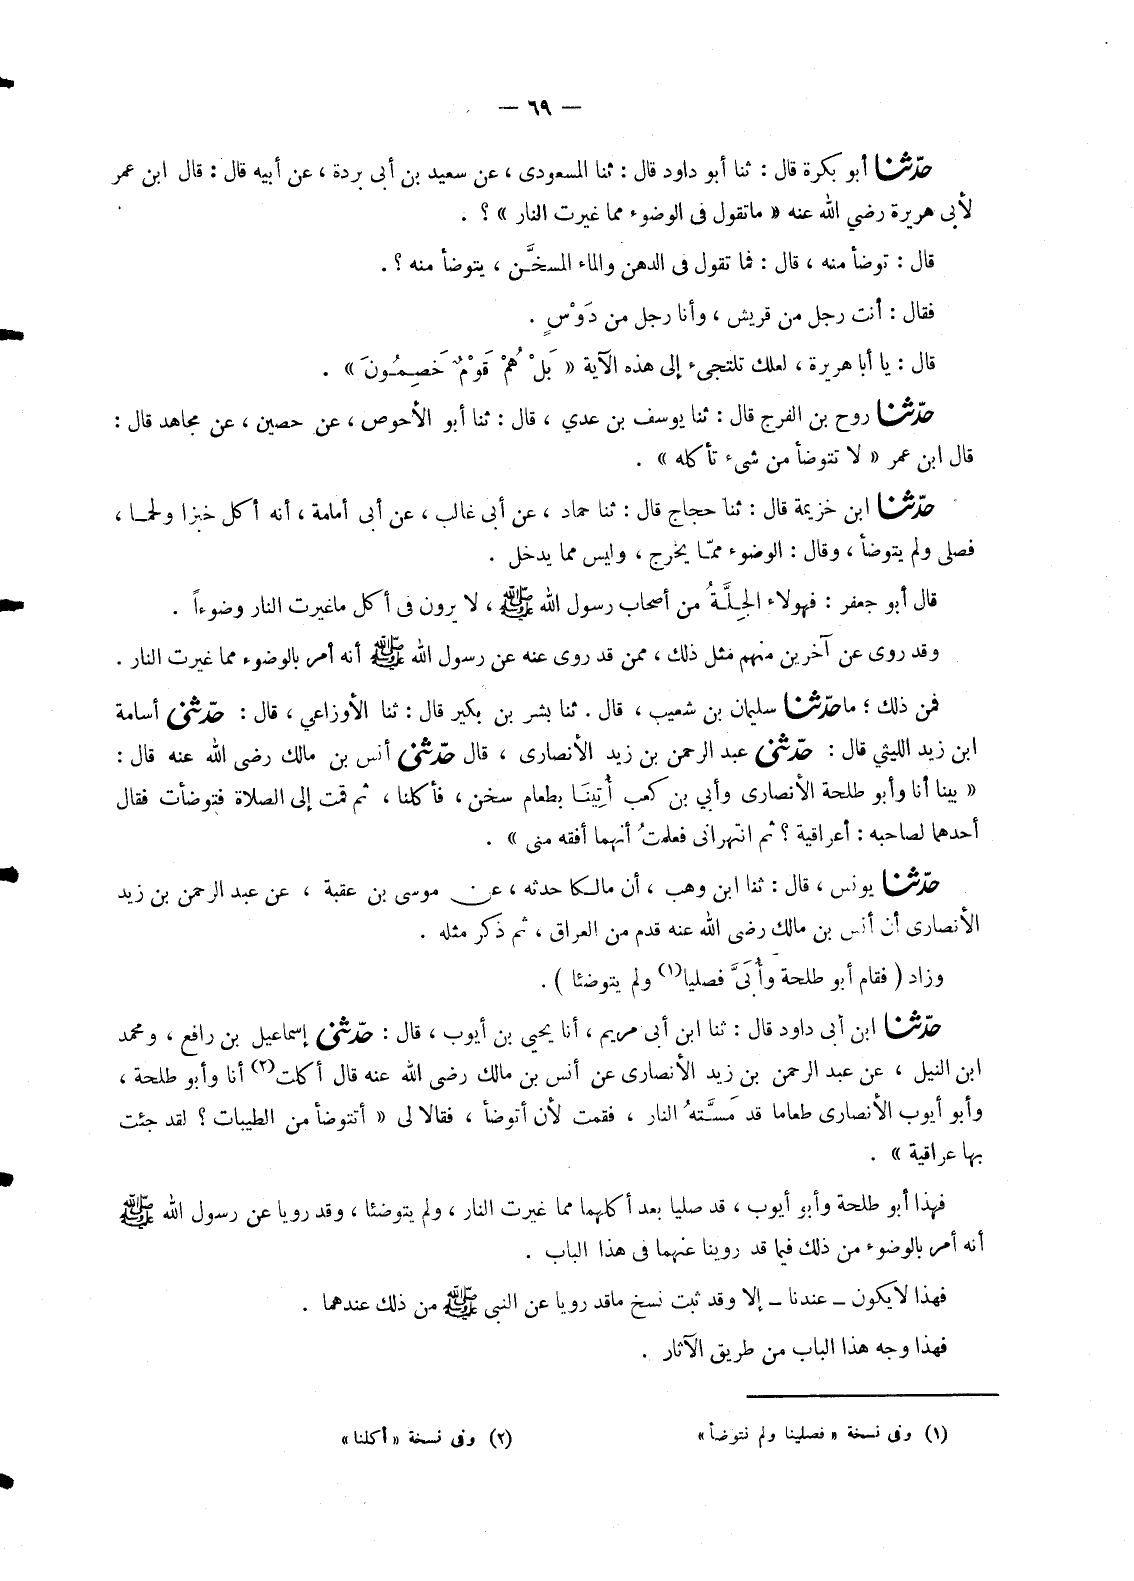 — ٦٩ —
حدّثنا أبو بكرة قال : ثنا أبو داود قال : ثنا المسعودى ، عن سعيد بن أبى بردة ، عن أبيه قال : قال ابن عمر
لأبى هريرة رضي الله عنه « ماتقول فى الوضوء مما غيرت النار » ؟ .
قال : توضأ منه ، قال : فما تقول فى الدهن والماء المسخَّن ، يتوضأ منه ؟ .
فقال : أنت رجل من قريش ، وأنا رجل من دَوْسٍ .
قال : يا أبا هريرة ، لعلك تلتجىء إلى هذه الآية « بَلْ هُمْ قَوْمٌ خَصِمُونَ » .
حدّثنا روح بن الفرج قال : ثنا يوسف بن عدي ، قال : ثنا أبو الأحوص ، عن حصين ، عن مجاهد قال :
قال ابن عمر « لا تتوضأ من شىء تأكله » .
حدّثنا ابن خزيمة قال : ثنا حجاج قال : ثنا حماد ، عن أبى غالب ، عن أبى أمامة ، أنه أكل خبزا ولحما ،
فصلى ولم يتوضأ ، وقال : الوضوء ممّا يخرج ، وليس مما يدخل .
قال أبو جعفر : فهولاء الجِلَّةُ من أصحاب رسول الله ﷺ ، لا يرون فى أكل ماغيرت النار وضوءاً .
وقد روى عن آخرين منهم مثل ذلك ، ممن قد روى عنه عن رسول الله ﷺ أنه أمر بالوضوء مما غيرت النار .
فمن ذلك ؛ ماحدّثنا سليمان بن شعيب ، قال . ثنا بشر بن بكير قال : ثنا الأوزاعي ، قال : حدّثنى أسامة
ابن زيد الليثي قال : حدّثنى عبد الرحمن بن زيد الأنصارى ، قال حدّثنى أنس بن مالك رضى الله عنه قال :
« بينا أنا وأبو طلحة الأنصارى وأبي بن كعب أُتِينَا بطعام سخن ، فأكلنا ، ثم قمت إلى الصلاة فتوضأت فقال
أحدهما لصاحبه : أعراقية ؟ ثم انتهرانى فعلمتُ أنهما أفقه منى » .
حدّثنا يونس ، قال : ثنا ابن وهب ، أن مالكا حدثه ، عن موسى بن عقبة ، عن عبد الرحمن بن زيد
الأنصارى أن أنس بن مالك رضى الله عنه قدم من العراق ، ثم ذكر مثله .
وزاد ( فقام أبو طلحة وأُبَىَّ فصليا(١) ولم يتوضئا ) .
حدّثنا ابن أبى داود قال : ثنا ابن أبى مريم ، أنا يحيي بن أيوب ، قال : حدّثنى إسماعيل بن رافع ، ومحمد
ابن النيل ، عن عبد الرحمن بن زيد الأنصارى عن أنس بن مالك رضى الله عنه قال أكلت(٢) أنا وأبو طلحة ،
وأبو أيوب الأنصارى طعاما قد مَسَّتهُ النار ، فقمت لأن أتوضأ ، فقالا لى « أتتوضأ من الطيبات ؟ لقد جئت
بها عراقية » .
فهذا أبو طلحة وأبو أيوب ، قد صليا بعد أكلهما مما غيرت النار ، ولم يتوضئا ، وقد رويا عن رسول الله ﷺ
أنه أمر بالوضوء من ذلك فيما قد روينا عنهما فى هذا الباب .
فهذا لايكون ــ عندنا ــ إلا وقد ثبت نسخ ماقد رويا عن النبى ﷺ من ذلك عندهما .
فهذا وجه هذا الباب من طريق الآثار .
(١) وفى نسخة « فصلينا ولم نتوضأ» (٢) وفى نسخة «أكلنا»